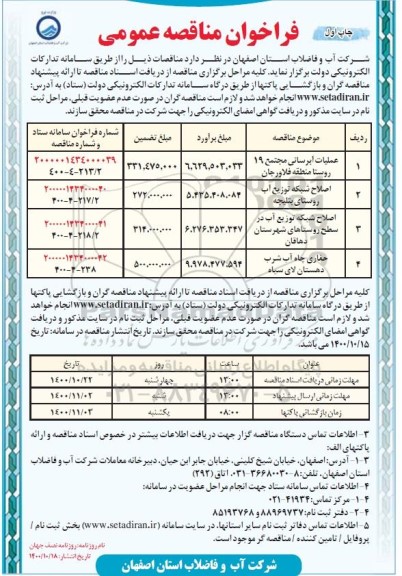 چاپ اول
فراخوان مناقصه عمومی
شرکت آب و فاضلاب استان اصفهان در نظر دارد مناقصات ذیل را از طریق سامانه تدارکات
الکترونیکی دولت برگزار نماید. کلیه مراحل برگزاری مناقصه از دریافت اسناد مناقصه تا ارائه پیشنهاد
مناقصه گران و بازگشایی پاکتها از طریق درگاه سامانه تدارکات الکترونیکی دولت (ستاد) به آدرس:
www.setadiran.ir انجام خواهد شد و لازم است مناقصه گران در صورت عدم عضویت قبلی، مراحل ثبت
نام در سایت مذکور و دریافت گواهی امضای الکترونیکی را جهت شرکت در مناقصه محقق سازند.
ردیف موضوع مناقصه مبلغ برآورد مبلغ تضمین شماره فراخوان سامانه ستاد و شماره مناقصه
۱ عملیات آبرسانی مجتمع ۱۹ روستا منطقه فلاورجان ۶.۶۲۹.۵۰۳.۰۳۳ ۳۳۱.۴۷۵.۰۰۰ ۲۰۰۰۰۰۱۴۳۴۰۰۰۰۳۹ ۴۰۰-۴-۲۱۳/۲
۲ اصلاح شبکه توزیع آب روستای بتلیجه ۵.۴۳۵.۴۰۸.۰۸۴ ۲۷۲.۰۰۰.۰۰۰ ۲۰۰۰۰۰۱۴۳۴۰۰۰۰۴۰ ۴۰۰-۴-۲۱۷/۲
۳ اصلاح شبکه توزیع آب در سطح روستاهای شهرستان دهاقان ۶.۲۷۶.۳۵۲.۳۴۷ ۳۱۴.۰۰۰.۰۰۰ ۲۰۰۰۰۰۱۴۳۴۰۰۰۰۴۱ ۴۰۰-۴-۲۱۸/۲
۴ حفاری چاه آب شرب دهستان لای سیاه ۹.۹۷۸.۴۷۷.۵۹۴ ۵۰۰.۰۰۰.۰۰۰ ۲۰۰۰۰۰۱۴۳۴۰۰۰۰۴۲ ۴۰۰-۴-۲۳۸
کلیه مراحل برگزاری مناقصه از دریافت اسناد مناقصه تا ارائه پیشنهاد مناقصه گران و بازگشایی پاکتها
از طریق درگاه سامانه تدارکات الکترونیکی دولت (ستاد) به آدرس www.setadiran.ir انجام خواهد
شد و لازم است مناقصه گران در صورت عدم عضویت قبلی، مراحل ثبت نام در سایت مذکور و دریافت
گواهی امضای الکترونیکی را جهت شرکت در مناقصه محقق سازند. تاریخ انتشار مناقصه در سامانه: تاریخ
۱۴۰۰/۱۰/۱۵ می باشد.
عنوان ساعت روز تاریخ
مهلت زمانی دریافت اسناد مناقصه ۱۳:۰۰ چهارشنبه ۱۴۰۰/۱۰/۲۲
مهلت زمانی ارسال پیشنهاد ۱۳:۰۰ شنبه ۱۴۰۰/۱۱/۰۲
زمان بازگشایی پاکتها ۰۸:۰۰ یکشنبه ۱۴۰۰/۱۱/۰۳
۳- اطلاعات تماس دستگاه مناقصه گزار جهت دریافت اطلاعات بیشتر در خصوص اسناد مناقصه و ارائه
پاکتهای الف:
۳-۱- آدرس: اصفهان، خیابان شیخ کلینی، خیابان جابر ابن حیان، دبیرخانه معاملات شرکت آب و فاضلاب
استان اصفهان، تلفن: ۸-۰۳۱-۳۶۶۸۰۰۳۰ (داخلی ۲۹۲)
۴- اطلاعات تماس سامانه ستاد جهت انجام مراحل عضویت در سامانه:
۴-۱- مرکز تماس: ۰۲۱-۴۱۹۳۴
۴-۲- دفتر ثبت نام: ۸۸۹۶۹۷۳۷ و ۸۵۱۹۳۷۶۸
۵- اطلاعات تماس دفاتر ثبت نام سایر استانها، در سایت سامانه (www.setadiran.ir) بخش ثبت نام /
پروفایل / تامین کننده / مناقصه گر موجود است.
نام روزنامه: روزنامه نصف جهان
تاریخ انتشار: ۱۴۰۰/۱۰/۱۸
شرکت آب و فاضلاب استان اصفهان